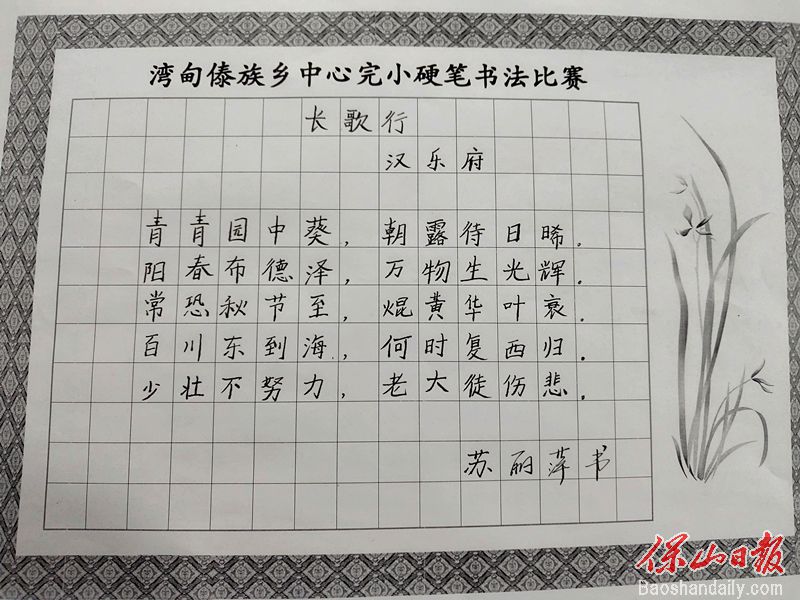 湾甸傣族乡中心完小硬笔书法比赛
长歌行
汉乐府
青青园中葵，朝露待日晞．
阳春布德泽，万物生光辉．
常恐秋节至，焜黄华叶衰．
百川东到海，何时复西归．
少壮不努力，老大徒伤悲．
苏丽萍书
保山日报
Baoshandaily.com